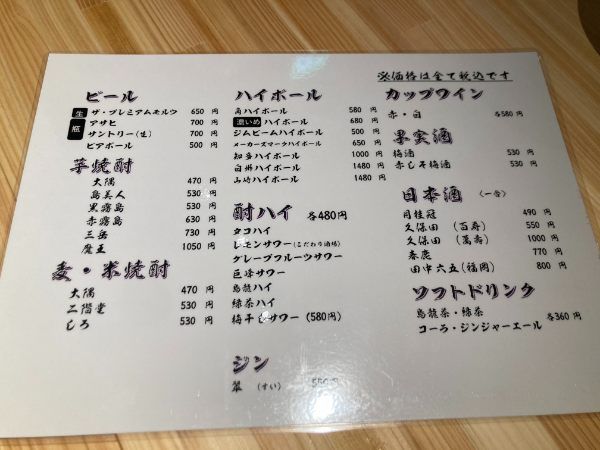 ※価格は全て税込です
ビール
生 ザ・プレミアムモルツ 650 円
瓶 アサヒ 700 円
サントリー(生) 700 円
ビアボール 500 円
芋焼酎
大隅 470 円
島美人 530 円
黒霧島 530 円
赤霧島 630 円
三岳 730 円
魔王 1050 円
麦・米焼酎
大隅 470 円
二階堂 530 円
しろ 530 円
ハイボール
角ハイボール 580 円
濃いめ ハイボール 680 円
ジムビームハイボール 500 円
メーカーズマークハイボール 650 円
知多ハイボール 1000 円
白州ハイボール 1480 円
山崎ハイボール 1480 円
酎ハイ 各480円
タコハイ
レモンサワー(こだわり酒場)
グレープフルーツサワー
巨峰サワー
烏龍ハイ
緑茶ハイ
梅干しサワー (580円)
ジン
翠 (すい)
カップワイン
赤・白 各580 円
果実酒
梅酒 530 円
赤しそ梅酒 530 円
日本酒 (一合)
月桂冠 490 円
久保田 (百寿) 550 円
久保田 (萬寿) 1000 円
春鹿 770 円
田中六五(福岡) 800 円
ソフトドリンク
烏龍茶・緑茶 各360円
コーラ・ジンジャーエール